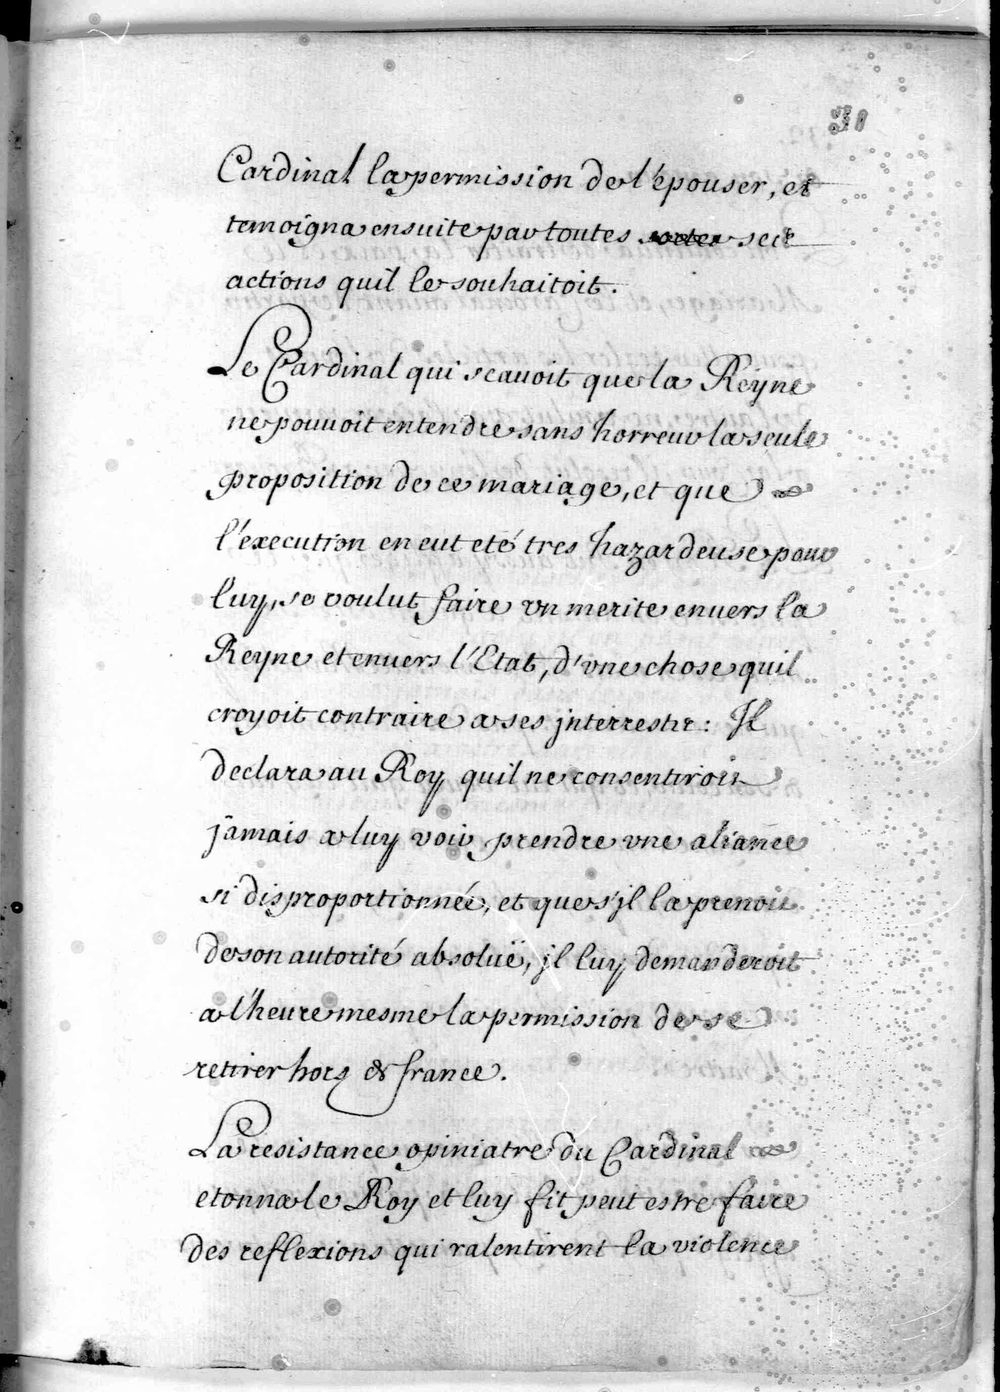 31
Cardinal la permission de l'épouser, et
temoigna ensuite par toutes ses
actions quil le souhaitoit.
Le Cardinal qui scavoit que la Reyne
ne pouvoit entendre sans horreur la seule
proposition de ce mariage, et que
l'execution en eut eté tres hazardeuse pour
luy, se voulut faire vn merite envers la
Reyne et envers l'Etat, d'vne chose quil
croyoit contraire a ses jnterrests: Il
declara au Roy quil ne consentiroit
jamais a luy voir prendre vne aliance
si disproportionnée, et que s'jl la prenoit
de son autorité absoluë, jl luy demanderoit
a l'heure mesme la permission de se
retirer hors de france.
La resistance opiniatre du Cardinal
etonna le Roy et luy fit peut estre faire
des reflexions qui ralentirent la violence